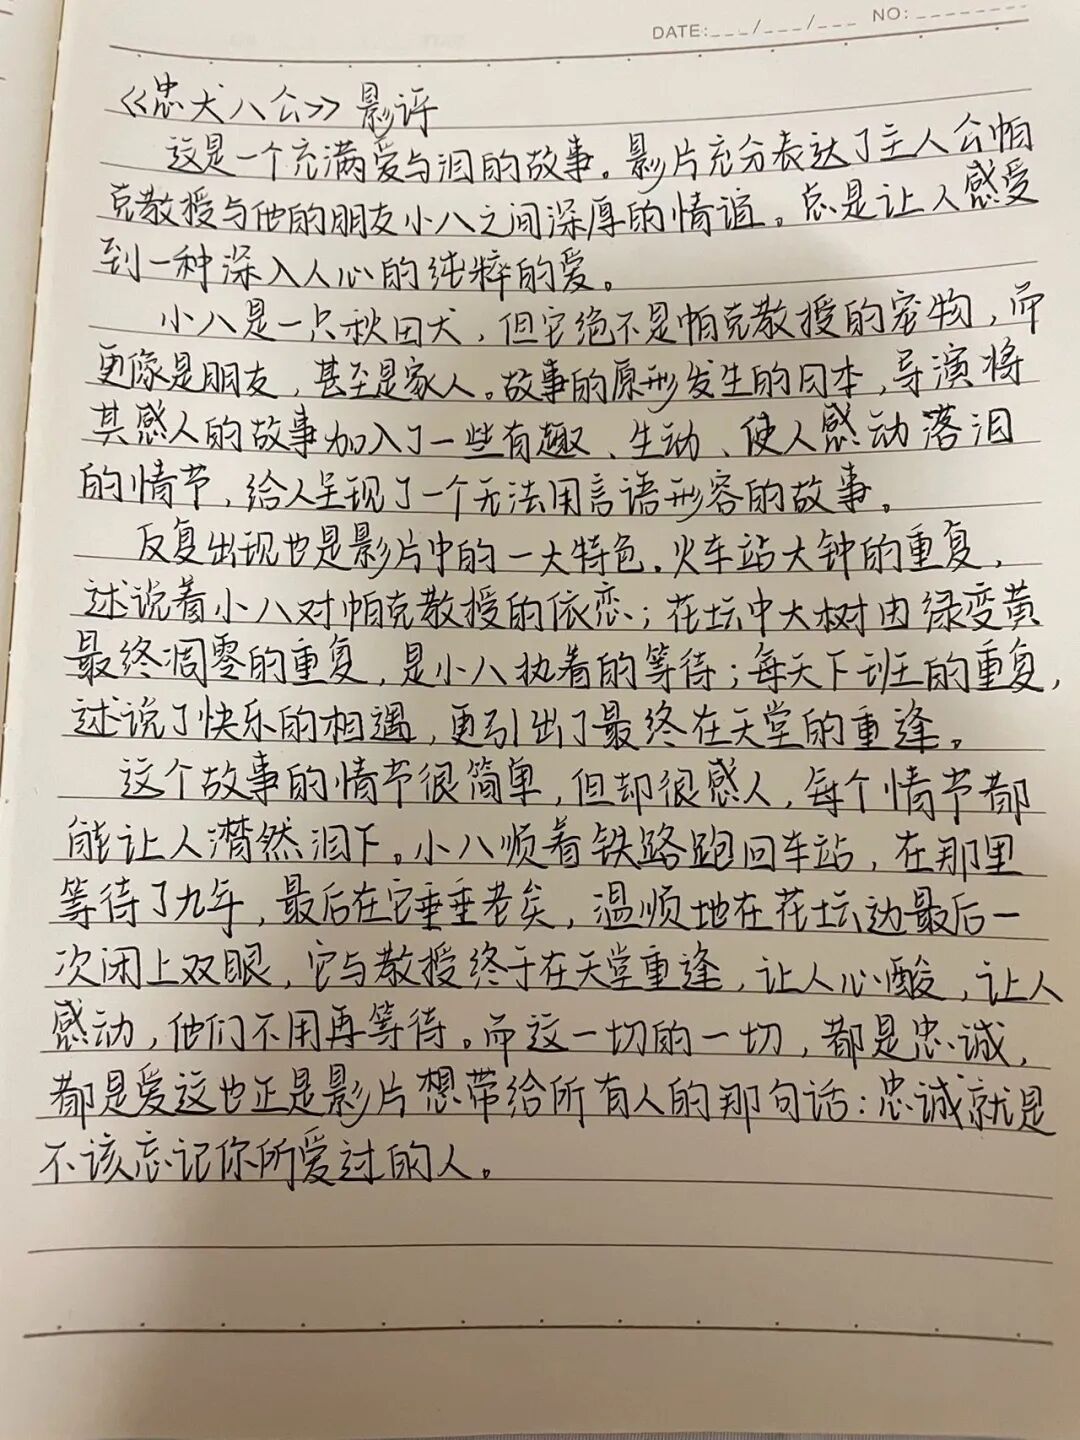 DATE:___/___/___ NO:________
《忠犬八公》影评
这是一个充满爱与泪的故事。影片充分表达了主人公帕
克教授与他的朋友小八之间深厚的情谊。总是让人感受
到一种深入人心的纯粹的爱。
小八是一只秋田犬，但它绝不是帕克教授的宠物，而
更像是朋友，甚至是家人。故事的原形发生的日本，导演将
其感人的故事加入了一些有趣、生动、使人感动落泪
的情节，给人呈现了一个无法用言语形容的故事。
反复出现也是影片中的一大特色。火车站大钟的重复，
述说着小八对帕克教授的依恋；花坛中大树由绿变黄
最终凋零的重复，是小八执着的等待；每天下班的重复，
述说了快乐的相遇，更引出了最终在天堂的重逢。
这个故事的情节很简单，但却很感人，每个情节都
能让人潸然泪下。小八顺着铁路跑回车站，在那里
等待了九年，最后在它垂垂老矣，温顺地在花坛边最后一
次闭上双眼，它与教授终于在天堂重逢，让人心酸，让人
感动，他们不用再等待。而这一切的一切，都是忠诚，
都是爱这也正是影片想带给所有人的那句话：忠诚就是
不该忘记你所爱过的人。